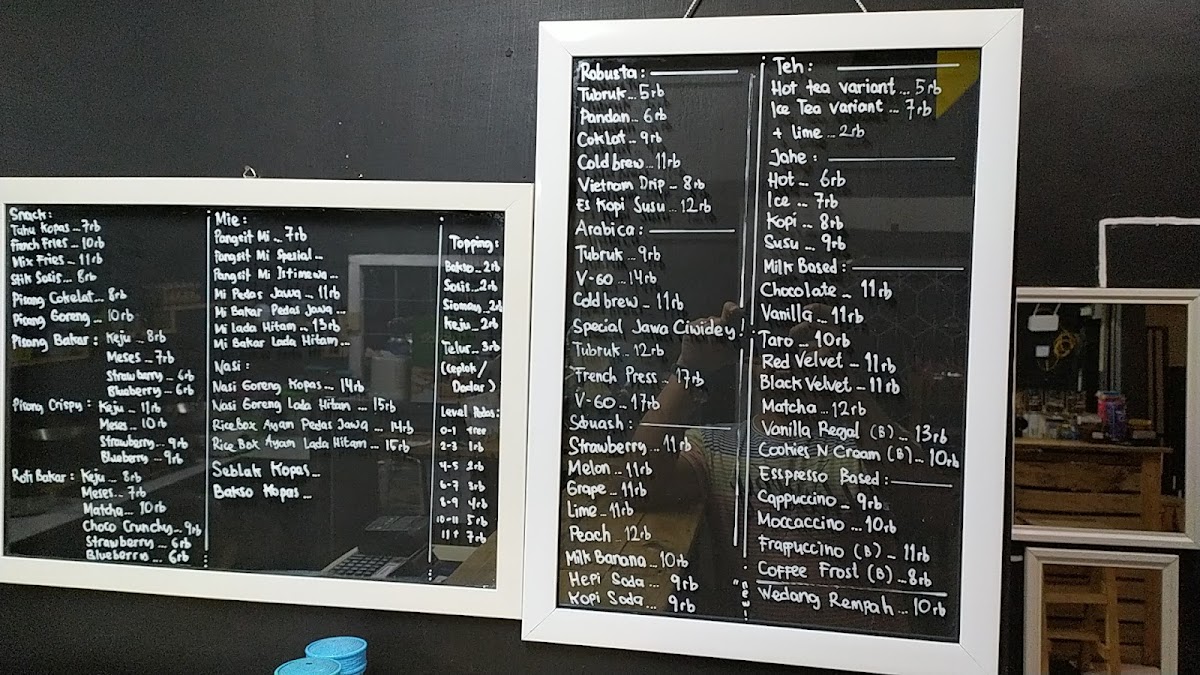 Snack:
Tahu Kopas ... 7rb
French Fries ... 10rb
Mix Fries ... 11rb
Stik Sosis ... 8rb
Pisang Cokelat ... 8rb
Pisang Goreng ... 10rb
Pisang Bakar : Keju ... 8rb
Meses ... 7rb
Strawberry ... 6rb
Blueberry ... 6rb
Pisang Crispy : Keju ... 11rb
Meses ... 10rb
Strawberry ... 9rb
Blueberry ... 9rb
Roti Bakar : Keju ... 8rb
Meses ... 7rb
Matcha ... 10rb
Choco Crunchy ... 9rb
Strawberry ... 6rb
Blueberry ... 6rb
Mie :
Pangsit Mi ... 7rb
Pangsit Mi Spesial ...
Pangsit Mi Istimewa ...
Mi Pedas Jawa ... 11rb
Mi Bakar Pedas Jawa ...
Mi Lada Hitam ... 13rb
Mi Bakar Lada Hitam ...
Nasi :
Nasi Goreng Kopas ... 14rb
Nasi Goreng Lada Hitam ... 15rb
Rice Box Ayam Pedas Jawa ... 14rb
Rice Box Ayam Lada Hitam ... 15rb
Seblak Kopas ...
Bakso Kopas ...
Topping :
Bakso ... 2rb
Sosis ... 2rb
Siomay ... 2rb
Keju ... 2rb
Telur ... 3rb
(Ceplok /
Dadar )
Level Pedas :
0-1 free
2-3 1rb
4-5 2rb
6-7 3rb
8-9 4rb
10-11 5rb
11+ 7rb
Robusta :
Tubruk ... 5rb
Pandan ... 6rb
Coklat ... 9rb
Cold brew ... 11rb
Vietnam Drip ... 8rb
Es Kopi Susu ... 12rb
Arabica :
Tubruk ... 9rb
V-60 ... 14rb
Cold brew ... 11rb
Special Jawa Ciwidey !
Tubruk ... 12rb
French Press ... 17rb
V-60 ... 17rb
Squash :
Strawberry ... 11rb
Melon ... 11rb
Grape ... 11rb
Lime ... 11rb
Peach ... 12rb
Milk Banana ... 10rb
Hepi Soda ... 9rb
Kopi Soda ... 9rb
"new!
Teh :
Hot tea variant ... 5rb
Ice Tea variant ... 7rb
+ lime ... 2rb
Jahe :
Hot ... 6rb
Ice ... 7rb
Kopi ... 8rb
Susu ... 9rb
Milk Based :
Chocolate ... 11rb
Vanilla ... 11rb
Taro ... 10rb
Red Velvet ... 11rb
Black Velvet ... 11rb
Matcha ... 12rb
Vanilla Regal (B) ... 13rb
Cookies N Cream (B) ... 10rb
Esspresso Based :
Cappuccino ... 9rb
Moccaccino ... 10rb
Frapuccino (B) ... 11rb
Coffee Frost (B) ... 8rb
Wedang Rempah ... 10rb